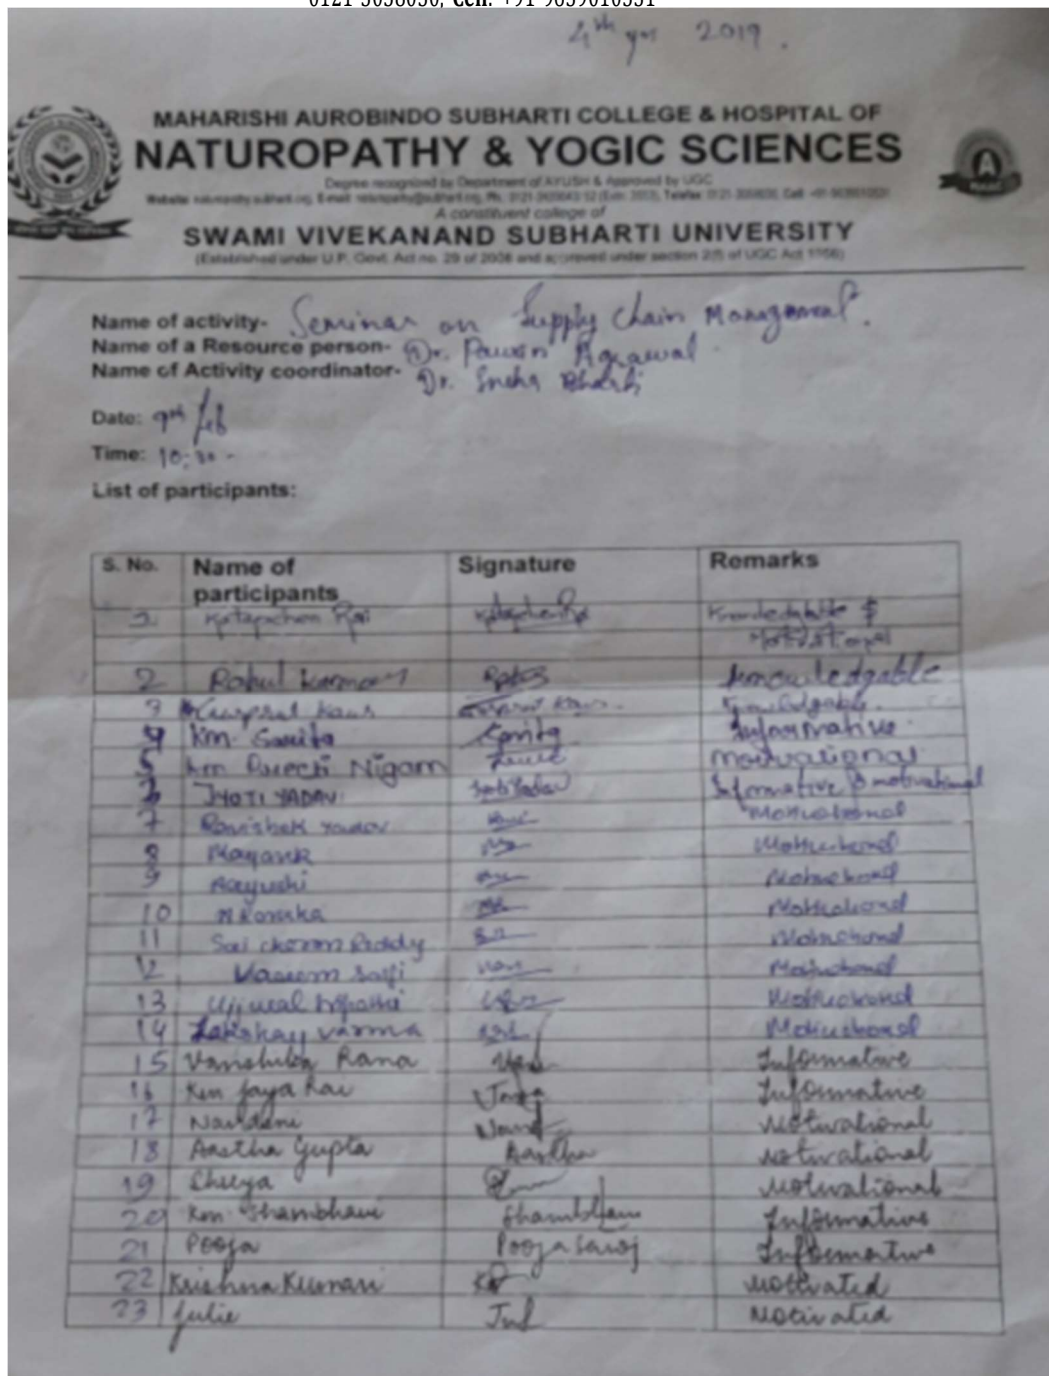 0121-3058030, Cell: +91-9639010531
4th yr 2019.
MAHARISHI AUROBINDO SUBHARTI COLLEGE & HOSPITAL OF
NATUROPATHY & YOGIC SCIENCES
Degree recognized by Department of AYUSH & Approved by UGC
A constituent college of
SWAMI VIVEKANAND SUBHARTI UNIVERSITY
(Established under U.P. Govt. Act no. 29 of 2008 and approved under section 2(f) of UGC Act 1956)
Name of activity- Seminar on Supply Chain Management.
Name of a Resource person- Dr. Pawan Agrawal
Name of Activity coordinator- Dr. Sneha Bharti
Date: 9th feb
Time: 10:30 -
List of participants:
S. No. Name of participants Signature Remarks
Rai Knowledgable &
Motivational
2 Rahul Kumar Knowledgable
3 Kaur Kaur Knowledgable.
4 Km. Sarita Sarita Informative
5 Km Nigam Motivational
6 JYOTI YADAV Jyoti Yadav Informative & motivational
7 Ravishek Yadav Motivational
8 Mayank Motivational
9 Aayushi Motivational
10 Motivational
11 Sai Reddy Motivational
12 Motivational
13 Ujjwal Motivational
14 Lakshay Varma Motivational
15 Vanshika Rana Informative
16 Km Jaya Rai Jaya Informative
17 Nand Motivational
18 Aastha Gupta Aastha Motivational
19 Shreya Motivational
20 Km. Shambhavi Shambhavi Informative
21 Pooja Pooja Saroj Informative
22 Krishna Kumari Motivated
23 Julie Jul Motivated